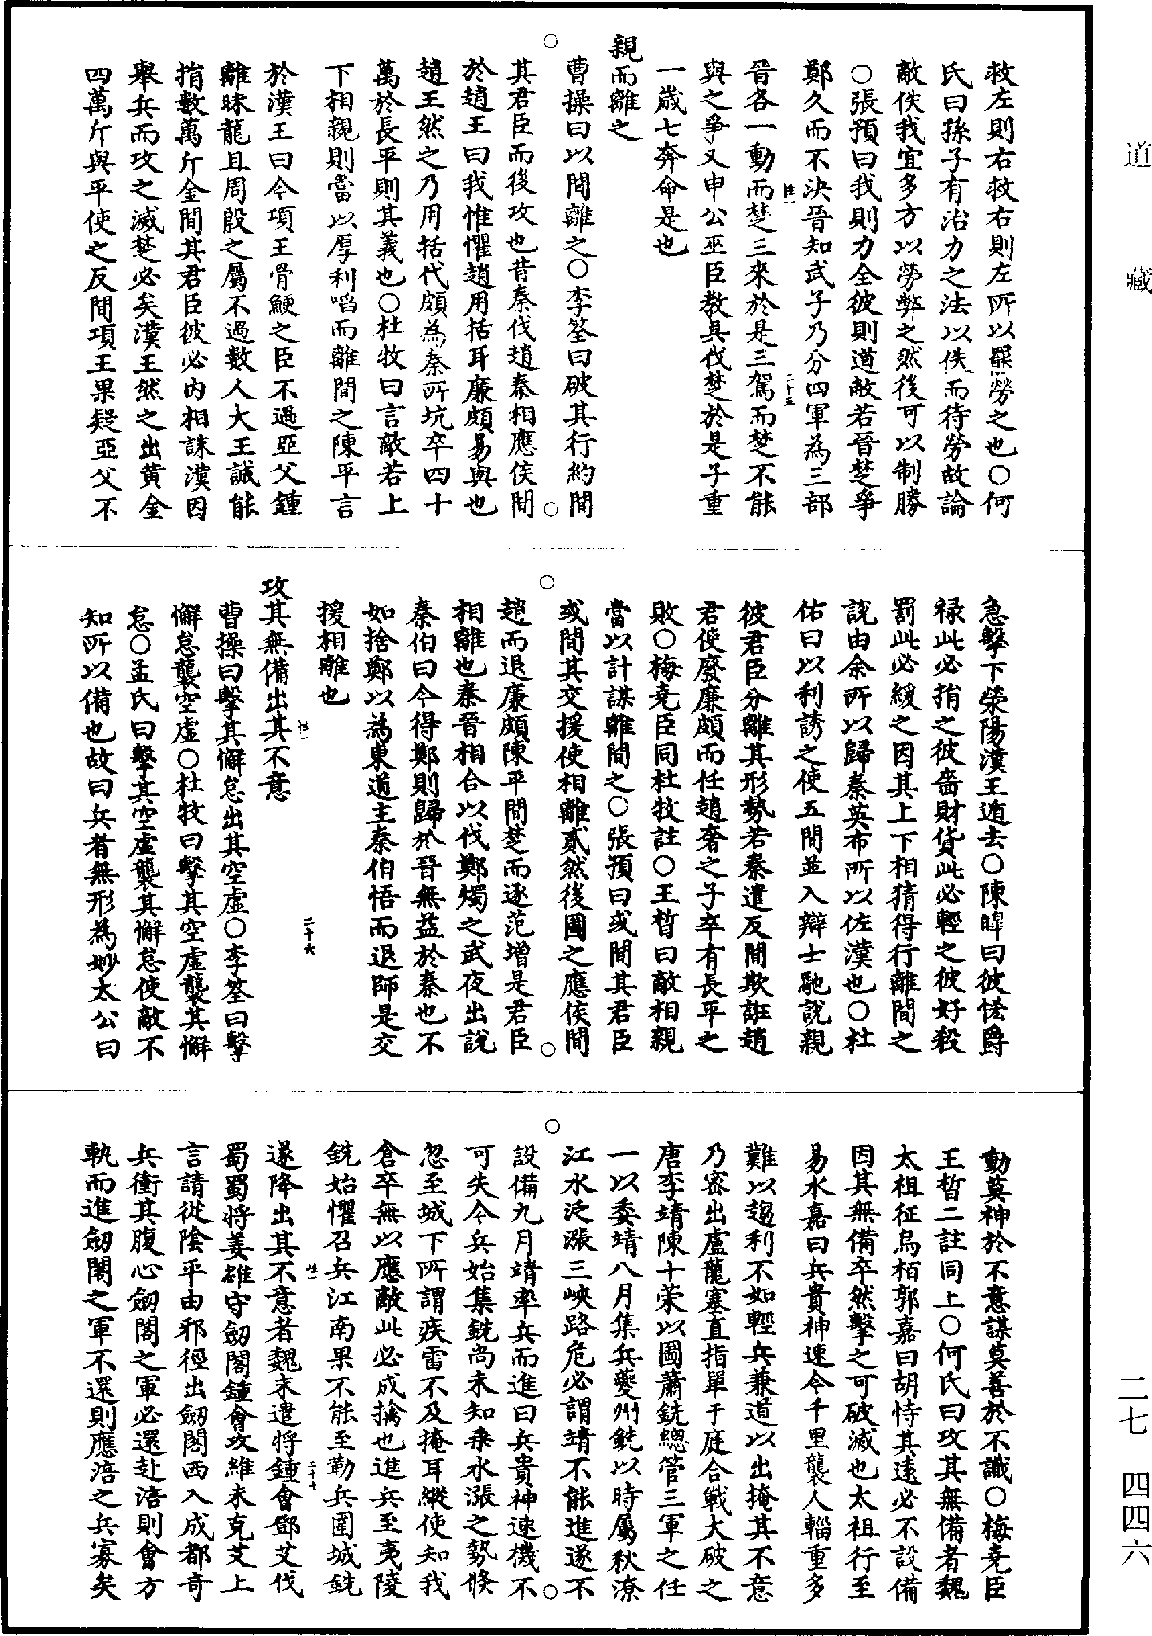 救左則右救右則左所以罷勞之也○何
氏曰孫子有治力之法以佚而待勞故論
敵佚我宜多方以勞弊之然後可以制勝
○張預曰我則力全彼則道敝若晉楚爭
鄭久而不決晉知武子乃分四軍為三部
晉各一動而楚三來於是三駕而楚不能
與之爭又申公巫臣教吳伐楚於是子重
一歲七奔命是也
親而離之
曹操曰以間離之○李筌曰破其行約間
其君臣而後攻也昔秦伐趙秦相應侯間
於趙王曰我惟懼趙用括耳廉頗易與也
趙王然之乃用括代頗為秦所坑卒四十
萬於長平則其義也○杜牧曰言敵若上
下相親則當以厚利啗而離間之陳平言
於漢王曰今項王骨鯁之臣不過亞父鍾
離昧龍且周殷之屬不過數人大王誠能
捐數萬斤金間其君臣彼必內相誅漢因
舉兵而攻之滅楚必矣漢王然之出黃金
四萬斤與平使之反間項王果疑亞父不
急擊下滎陽漢王遁去○陳皥曰彼恡爵
祿此必捐之彼嗇財貨此必輕之彼好殺
罰此必緩之因其上下相猜得行離間之
說由余所以歸秦英布所以佐漢也○杜
佑曰以利誘之使五間並入辯士馳說親
彼君臣分離其形勢若秦遣反間欺誑趙
君使廢廉頗而任趙奢之子卒有長平之
敗○梅堯臣同杜牧註○王晳曰敵相親
當以計謀離間之○張預曰或間其君臣
或間其交援使相離貳然後圖之應侯間
趙而退廉頗陳平間楚而逐范增是君臣
相離也秦晉相合以伐鄭燭之武夜出說
秦伯曰今得鄭則歸於晉無益於秦也不
如捨鄭以為東道主秦伯悟而退師是交
援相離也
二十六
攻其無備出其不意
曹操曰擊其懈怠出其空虛○李筌曰擊
懈怠襲空虛○杜牧曰擊其空虛襲其懈
怠○孟氏曰擊其空虛襲其懈怠使敵不
知所以備也故曰兵者無形為妙太公曰
動莫神於不意謀莫善於不識○梅堯臣
王晳二註同上○何氏曰攻其無備者魏
太祖征烏桓郭嘉曰胡恃其遠必不設備
因其無備卒然擊之可破滅也太祖行至
易水嘉曰兵貴神速今千里襲人輜重多
難以趨利不如輕兵兼道以出掩其不意
乃密出盧龍塞直指單于庭合戰大破之
唐李靖陳十策以圖蕭銑總管三軍之任
一以委靖八月集兵夔州銑以時屬秋潦
江水泛漲三峽路危必謂靖不能進遂不
設備九月靖率兵而進曰兵貴神速機不
可失今兵始集銑尚未知乘水漲之勢倏
忽至城下所謂疾雷不及掩耳縱使知我
倉卒無以應敵此必成擒也進兵至夷陵
銑始懼召兵江南果不能至勒兵圍城銑
遂降出其不意者魏末遣將鍾會鄧艾伐
蜀蜀將姜維守劒閣鍾會攻維未克艾上
言請從陰平由邪徑出劒閣西入成都奇
兵衝其腹心劒閣之軍必還赴涪則會方
軌而進劒閣之軍不還則應涪之兵寡矣
道藏
二七 四四六